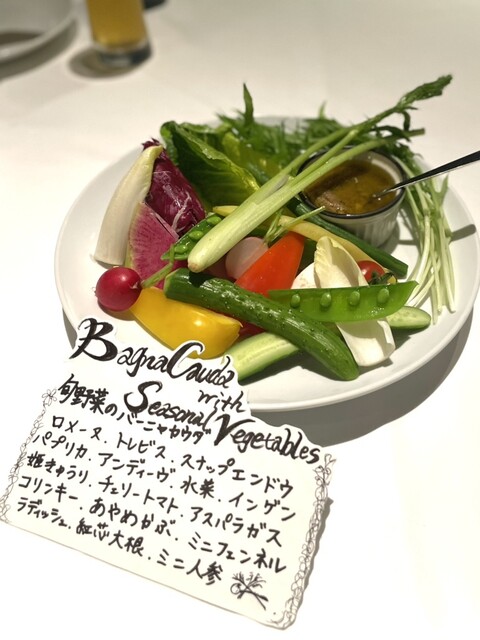 Bagna Cauda
with
Seasonal Vegetables
旬野菜のバーニャカウダ
ロメーヌ、トレビス、スナップエンドウ
パプリカ、アンディーヴ、水菜、インゲン
姫きゅうり、チェリートマト、アスパラガス
コリンキー、あやめかぶ、ミニフェンネル
ラディッシュ、紅芯大根、ミニ人参